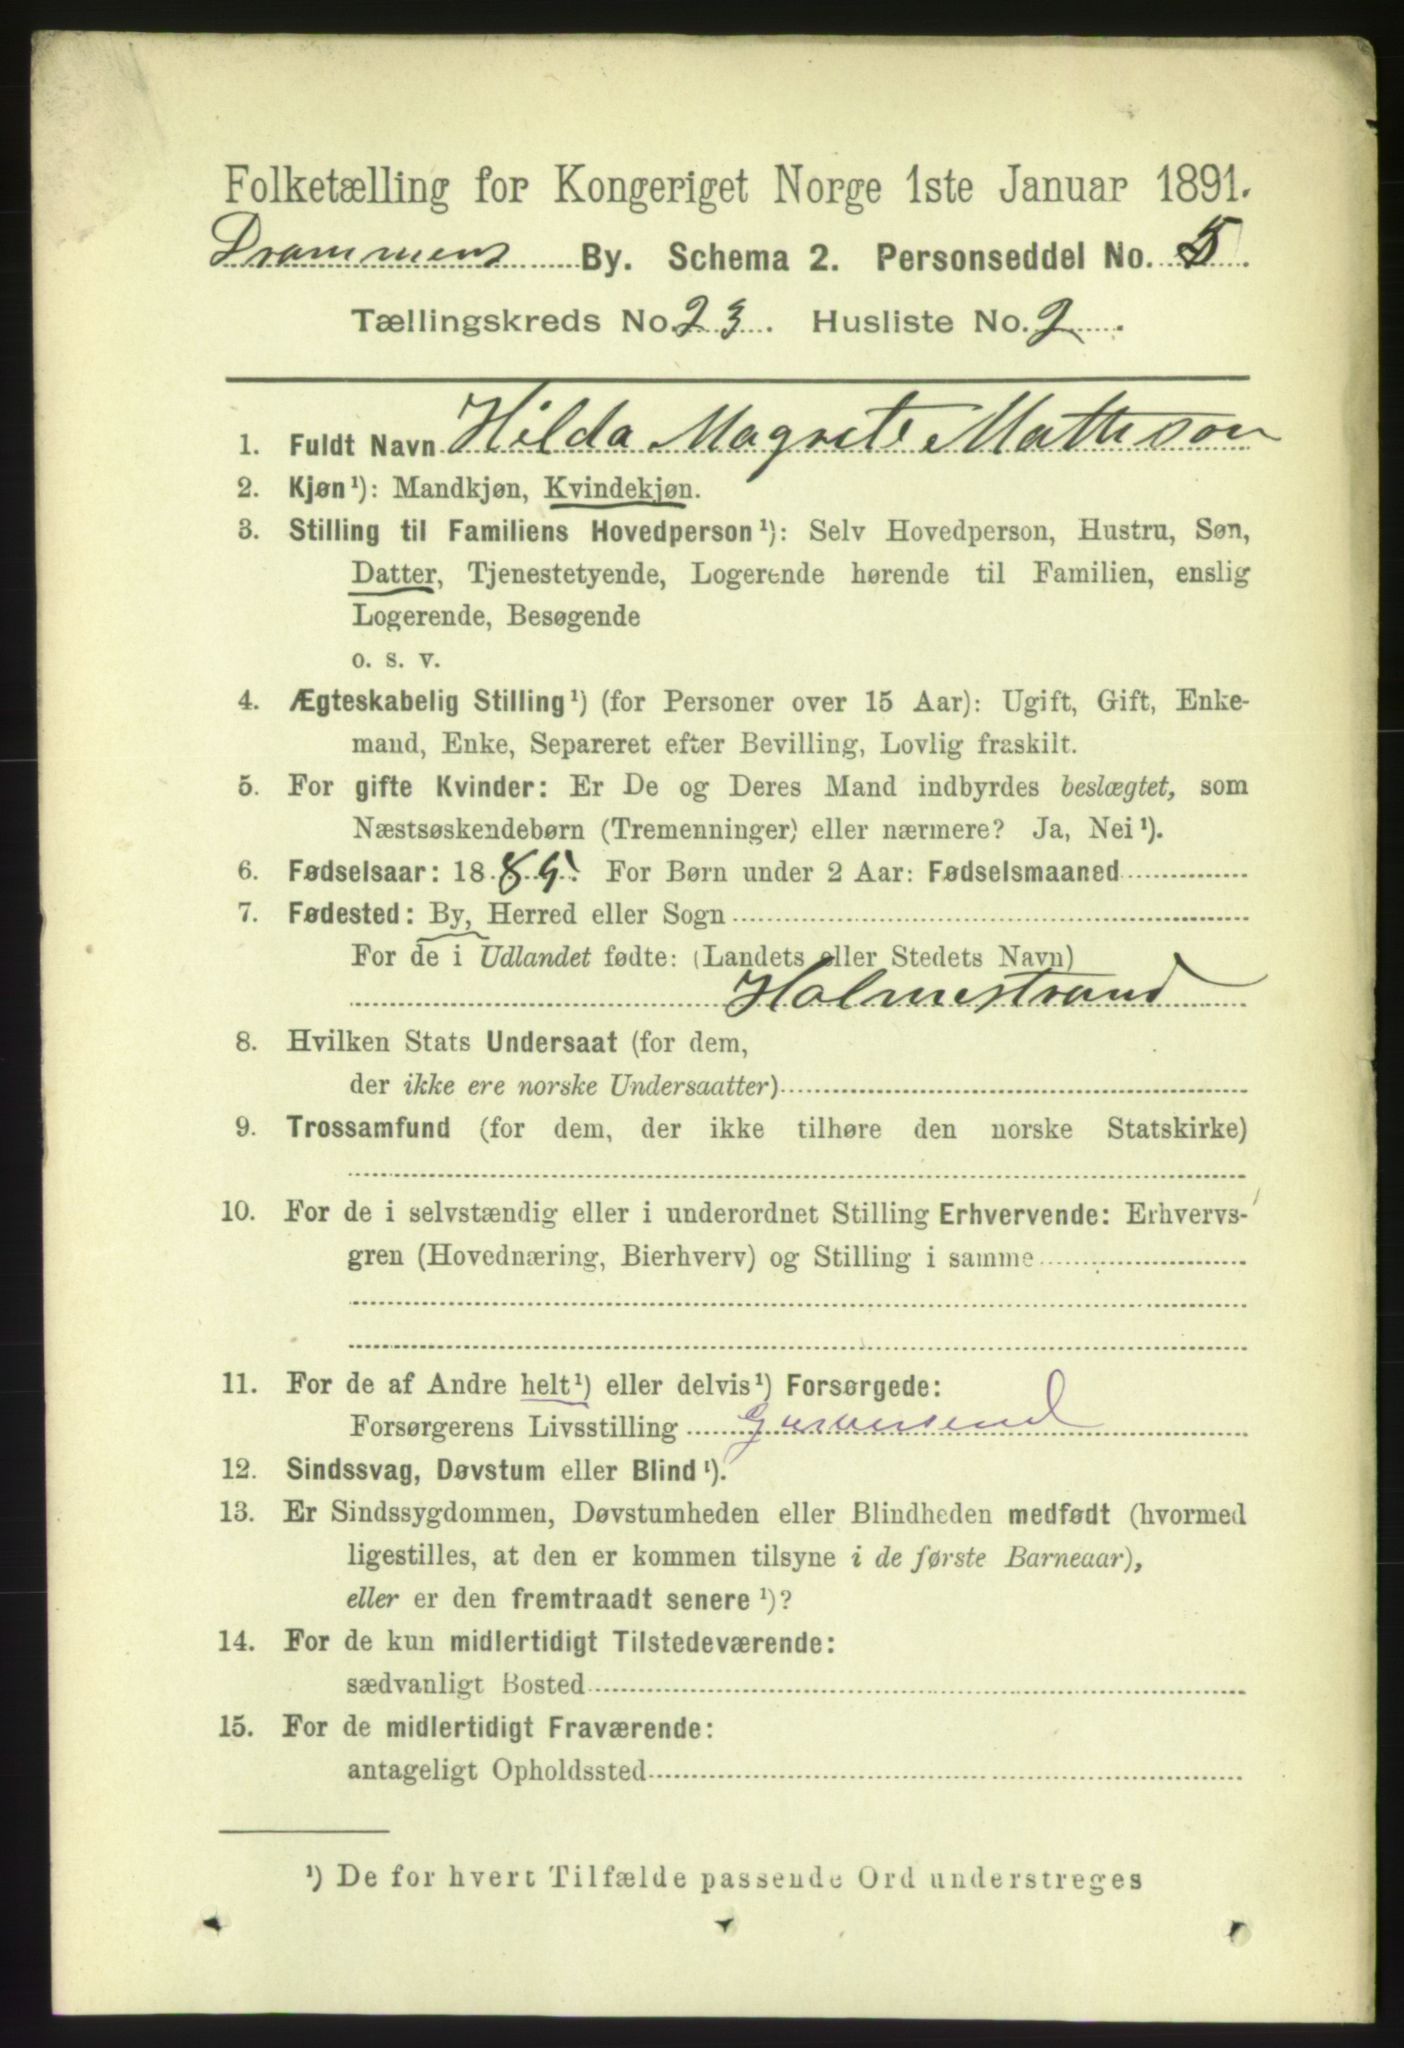 Folketælling for Kongeriget Norge 1ste Januar 1891.
Drammens By. Schema 2. Personseddel No. 5.
Tællingskreds No. 23. Husliste No. 2.
1. Fuldt Navn Hilda Magrete Mattison
2. Kjøn¹): Mandkjøn, Kvindekjøn.
3. Stilling til Familiens Hovedperson¹): Selv Hovedperson, Hustru, Søn,
Datter, Tjenestetyende, Logerende hørende til Familien, enslig
Logerende, Besøgende
o. s. v.
4. Ægteskabelig Stilling¹) (for Personer over 15 Aar): Ugift, Gift, Enke-
mand, Enke, Separeret efter Bevilling, Lovlig fraskilt.
5. For gifte Kvinder: Er De og Deres Mand indbyrdes beslægtet, som
Næstsøskendebørn (Tremenninger) eller nærmere? Ja, Nei¹).
6. Fødselsaar: 18 For Børn under 2 Aar: Fødselsmaaned
7. Fødested: By, Herred eller Sogn
For de i Udlandet fødte: (Landets eller Stedets Navn)
Holmestrand
8. Hvilken Stats Undersaat (for dem,
der ikke ere norske Undersaatter)
9. Trossamfund (for dem, der ikke tilhøre den norske Statskirke)
10. For de i selvstændig eller i underordnet Stilling Erhvervende: Erhvervs-
gren (Hovednæring, Bierhverv) og Stilling i samme
11. For de af Andre helt¹) eller delvis¹) Forsørgede:
Forsørgerens Livsstilling Garversvend
12. Sindssvag, Døvstum eller Blind¹).
13. Er Sindssygdommen, Døvstumheden eller Blindheden medfødt (hvormed
ligestilles, at den er kommen tilsyne i de første Barneaar),
eller er den fremtraadt senere¹)?
14. For de kun midlertidigt Tilstedeværende:
sædvanligt Bosted
15. For de midlertidigt Fraværende:
antageligt Opholdssted
¹) De for hvert Tilfælde passende Ord understreges